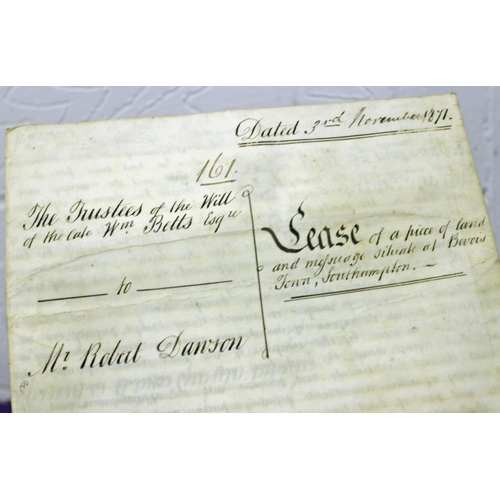 Dated 3rd November 1871.
161.
The Trustees of the Will
of the late Wm Betts Esqre
to
Mr. Robert Dawson
Lease of a piece of land
and messuage situate at Bevois
Town, Southampton.